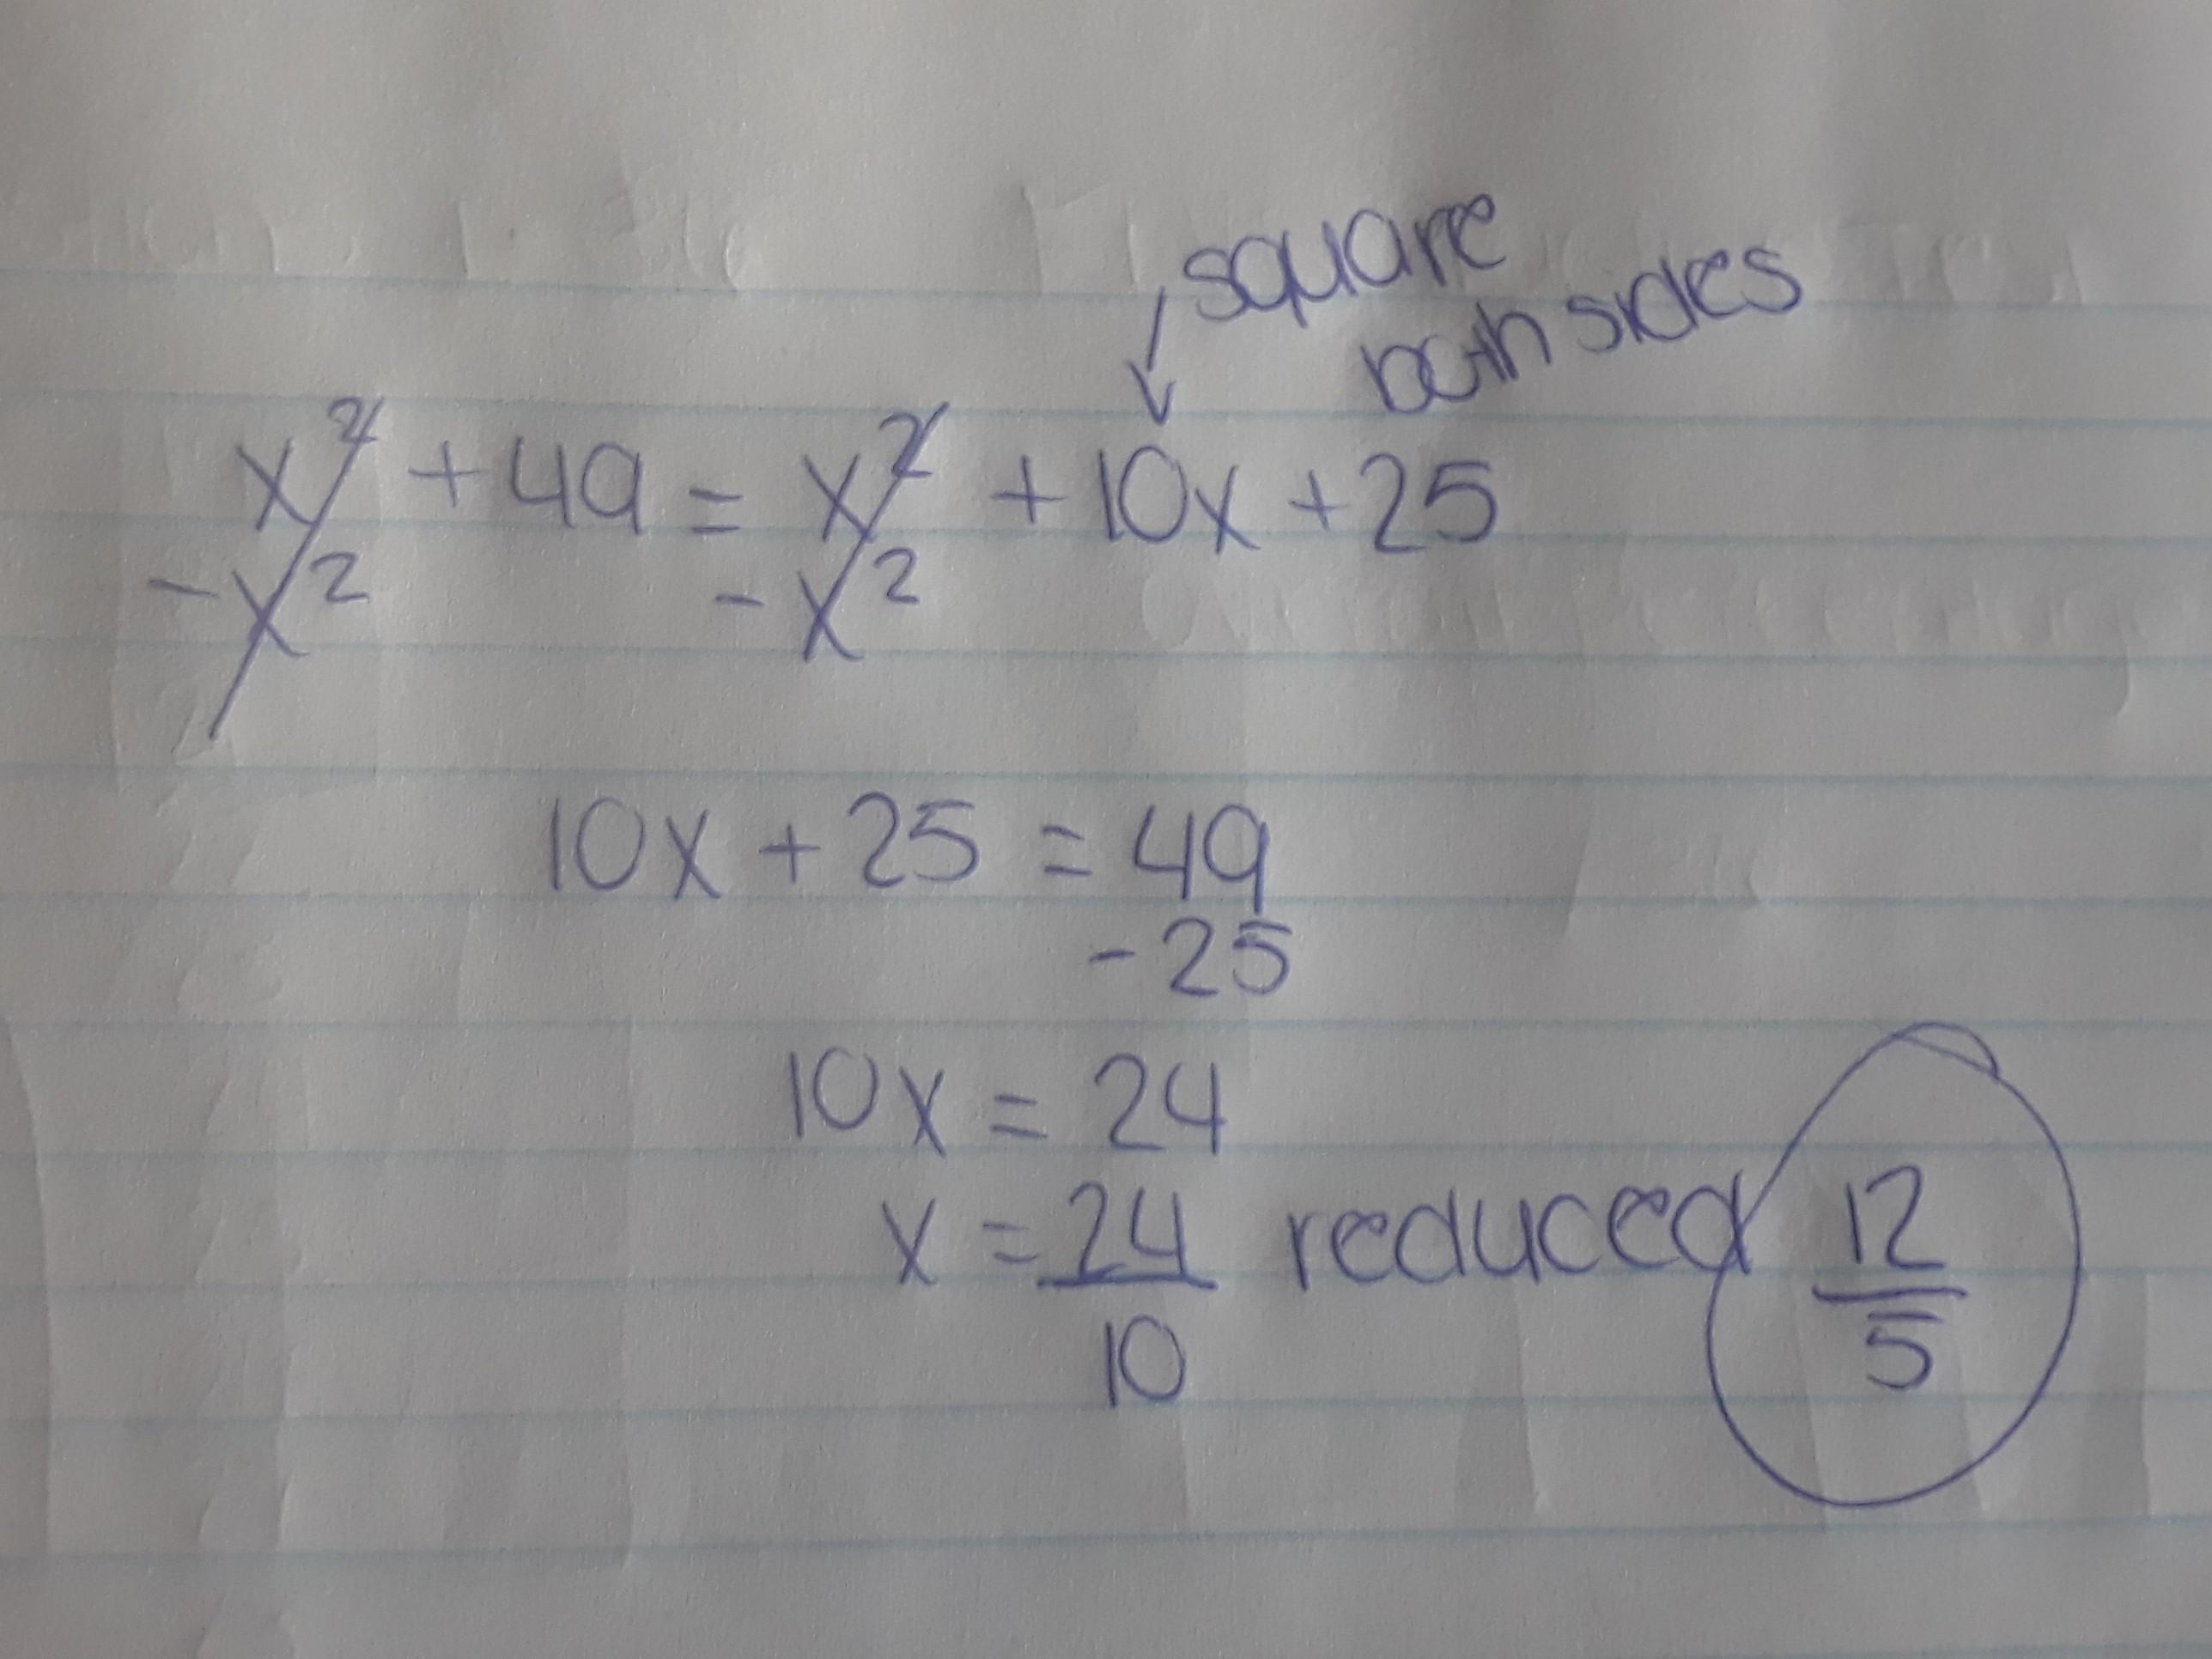 square
both sides
x² + 49 = x² + 10x + 25
- x² - x²
10x + 25 = 49
- 25
10x = 24
x = 24/10 reduced 12/5